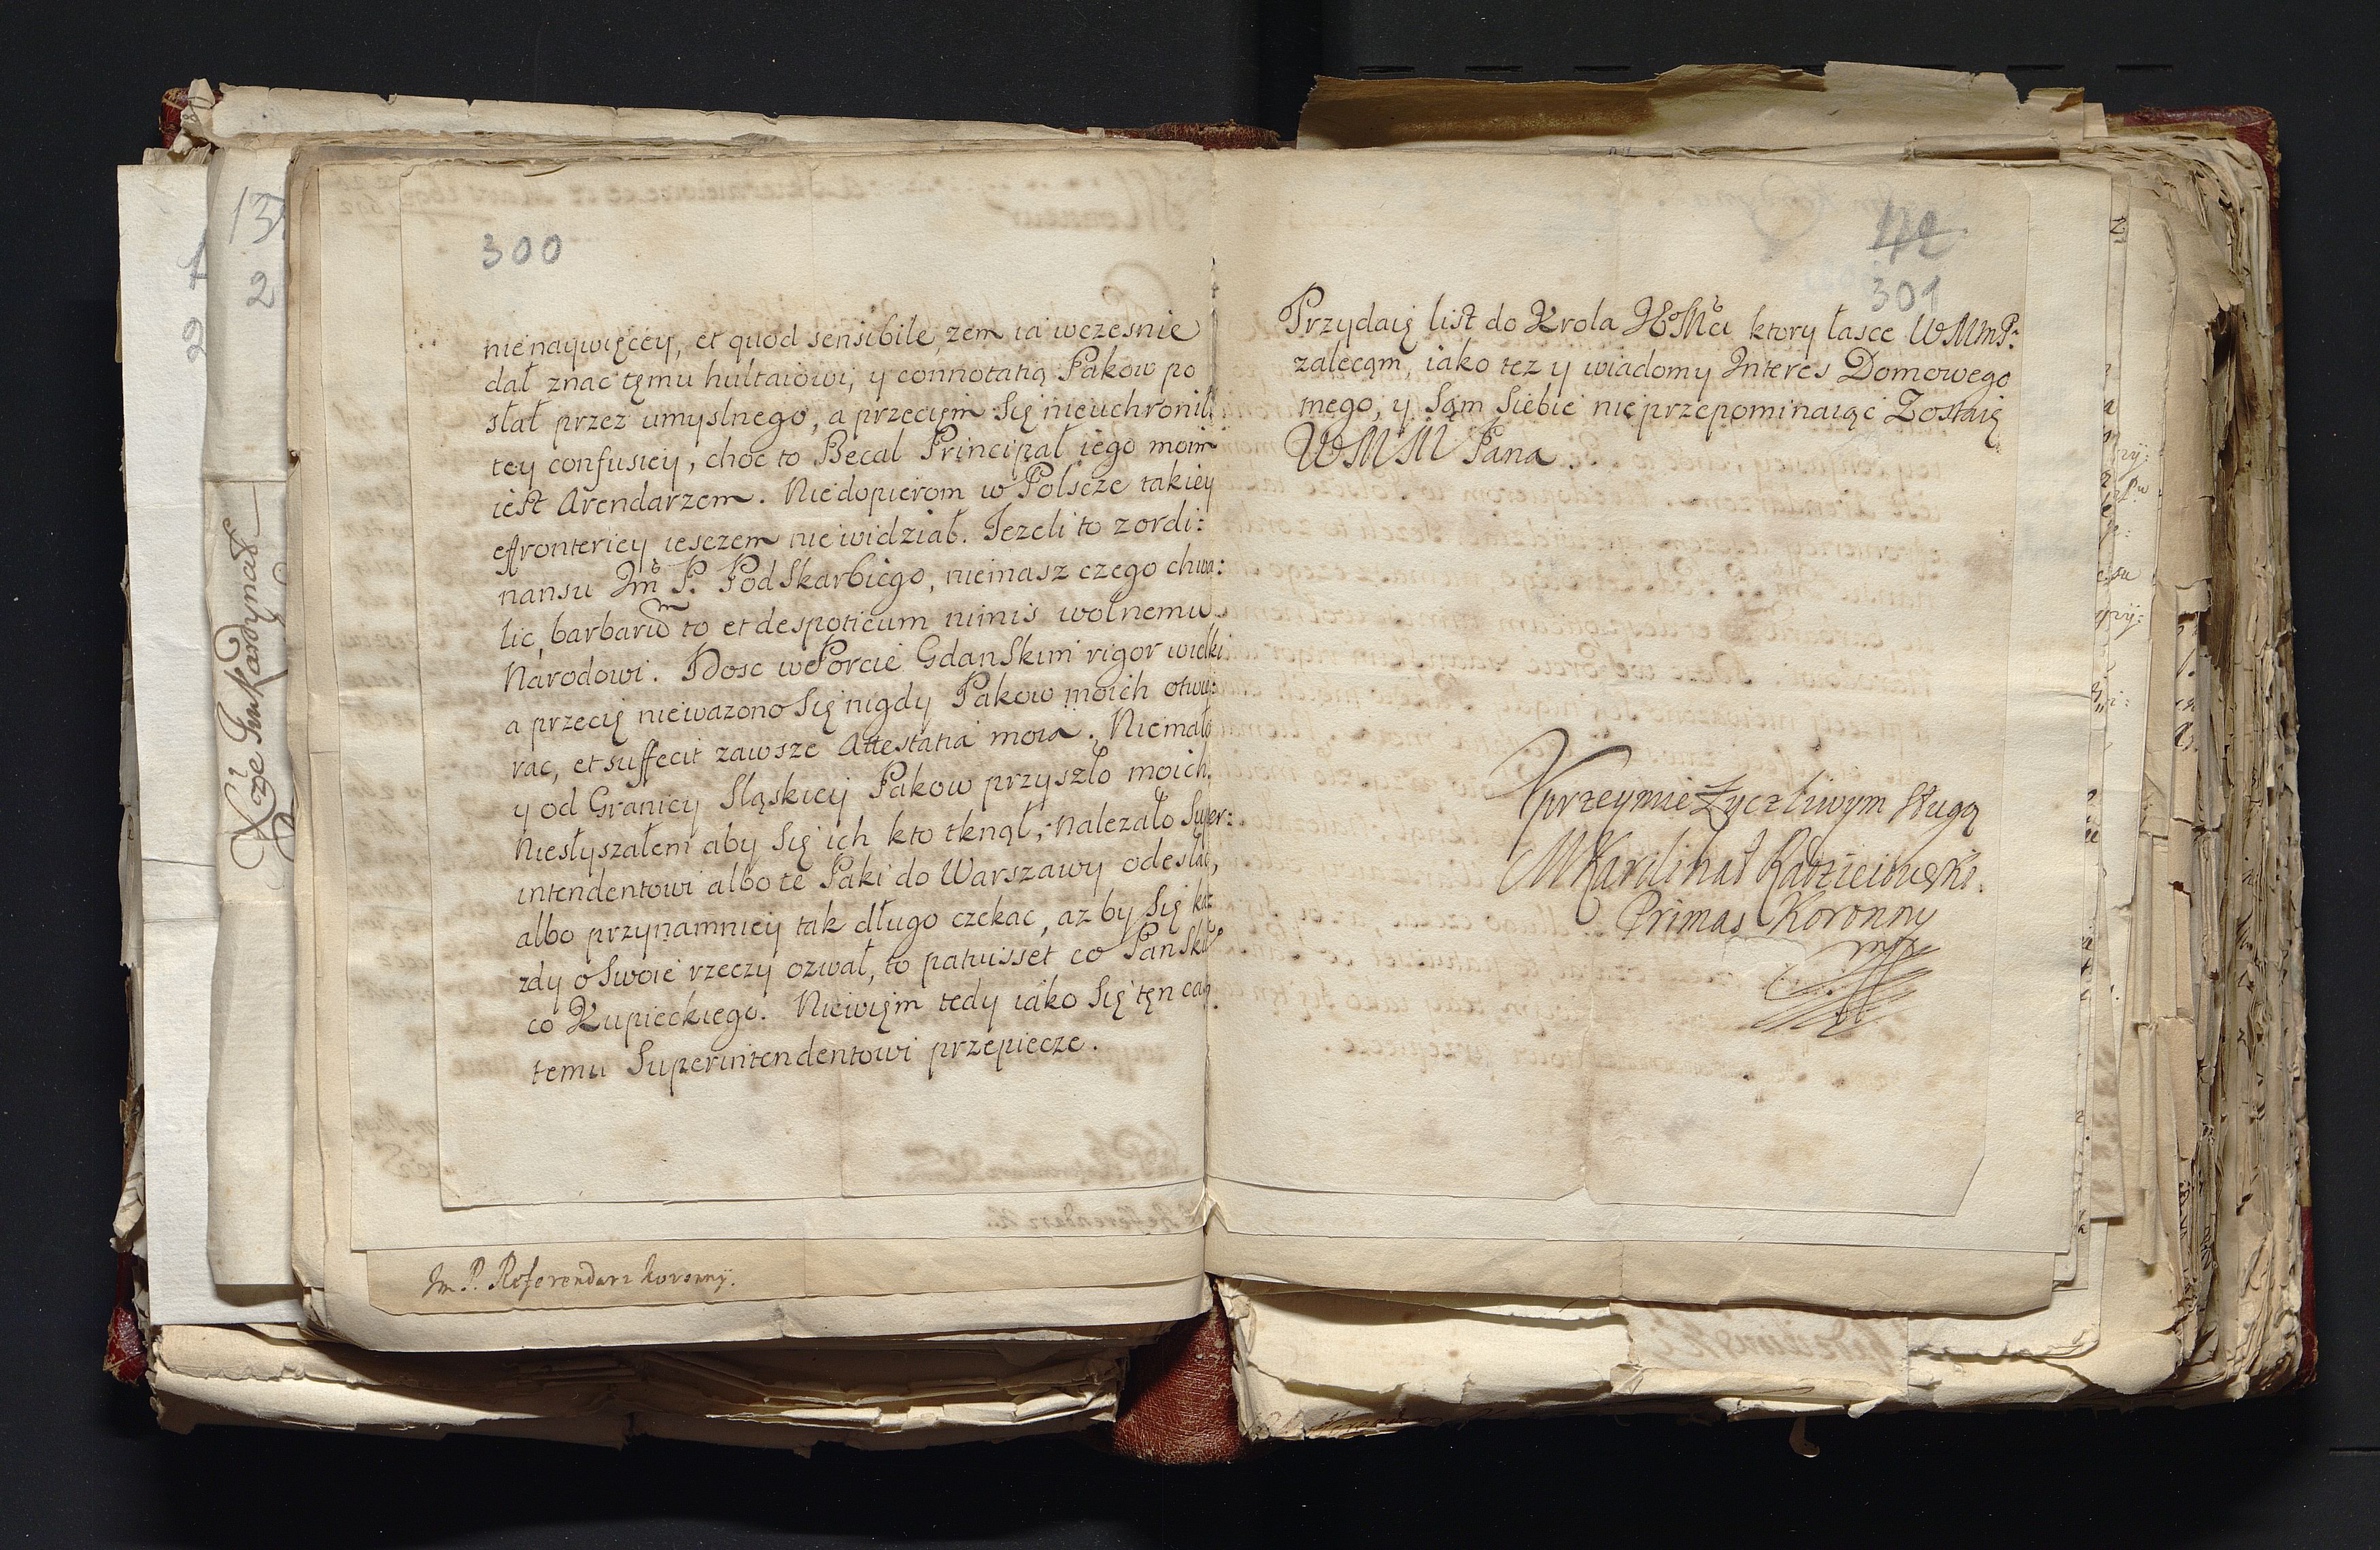 300
nienaywięcey, et quod sensibile, zem ia wczesnie
dał znac tęmu hultaiowi, y connotatią Pakow po
słał przez umyslnego, a przecięm się nieuchronił
tey confusiey, choc to Becal Principał iego moim
iest Arendarzem. Niedopierom w Polscze takiey
effronteriey iesczem niewidział. Iezeli to z ordi:
nansu Jm̃ P. Podskarbiego, niemasz czego chwa:
lic, barbarũ to et despoticum nimis wolnemu
Narodowi. Dosc w Porcie Gdanskim rigor wielki
a przecię niewazono się nigdy Pakow moich otwie:
rac, et suffecit zawsze Attestatia moia. Niemało
y od Granicy Sląskiey Pakow przyszło moich,
Niesłyszałem aby się ich kto tknął, Nalezało Super:
intendentowi albo te Paki do Warszawy odesłac,
albo przynamniey tak długo czekac, az by się ka
zdy o swoie rzeczy ozwał, to patuisset co Panskie
co Kupieckiego. Niewięm tedy iako się tęn
temu Superintendentowi przepiecze.
Jm P. Referendarz koronny.
Xże Jmć Kardynał
13
2
2
42
301
Przydaię list do Krola JEMci ktory łasce WMmP:
zalecąm, iako tez y wiadomy Interes Domowego
mego, y sąm siebie nieprzepominaiąc Zostaię
WMM Pana.
Uprzeymie Zyczliwym sługą
M Kardinał Radzieiowski.
Primas Koronny
mp